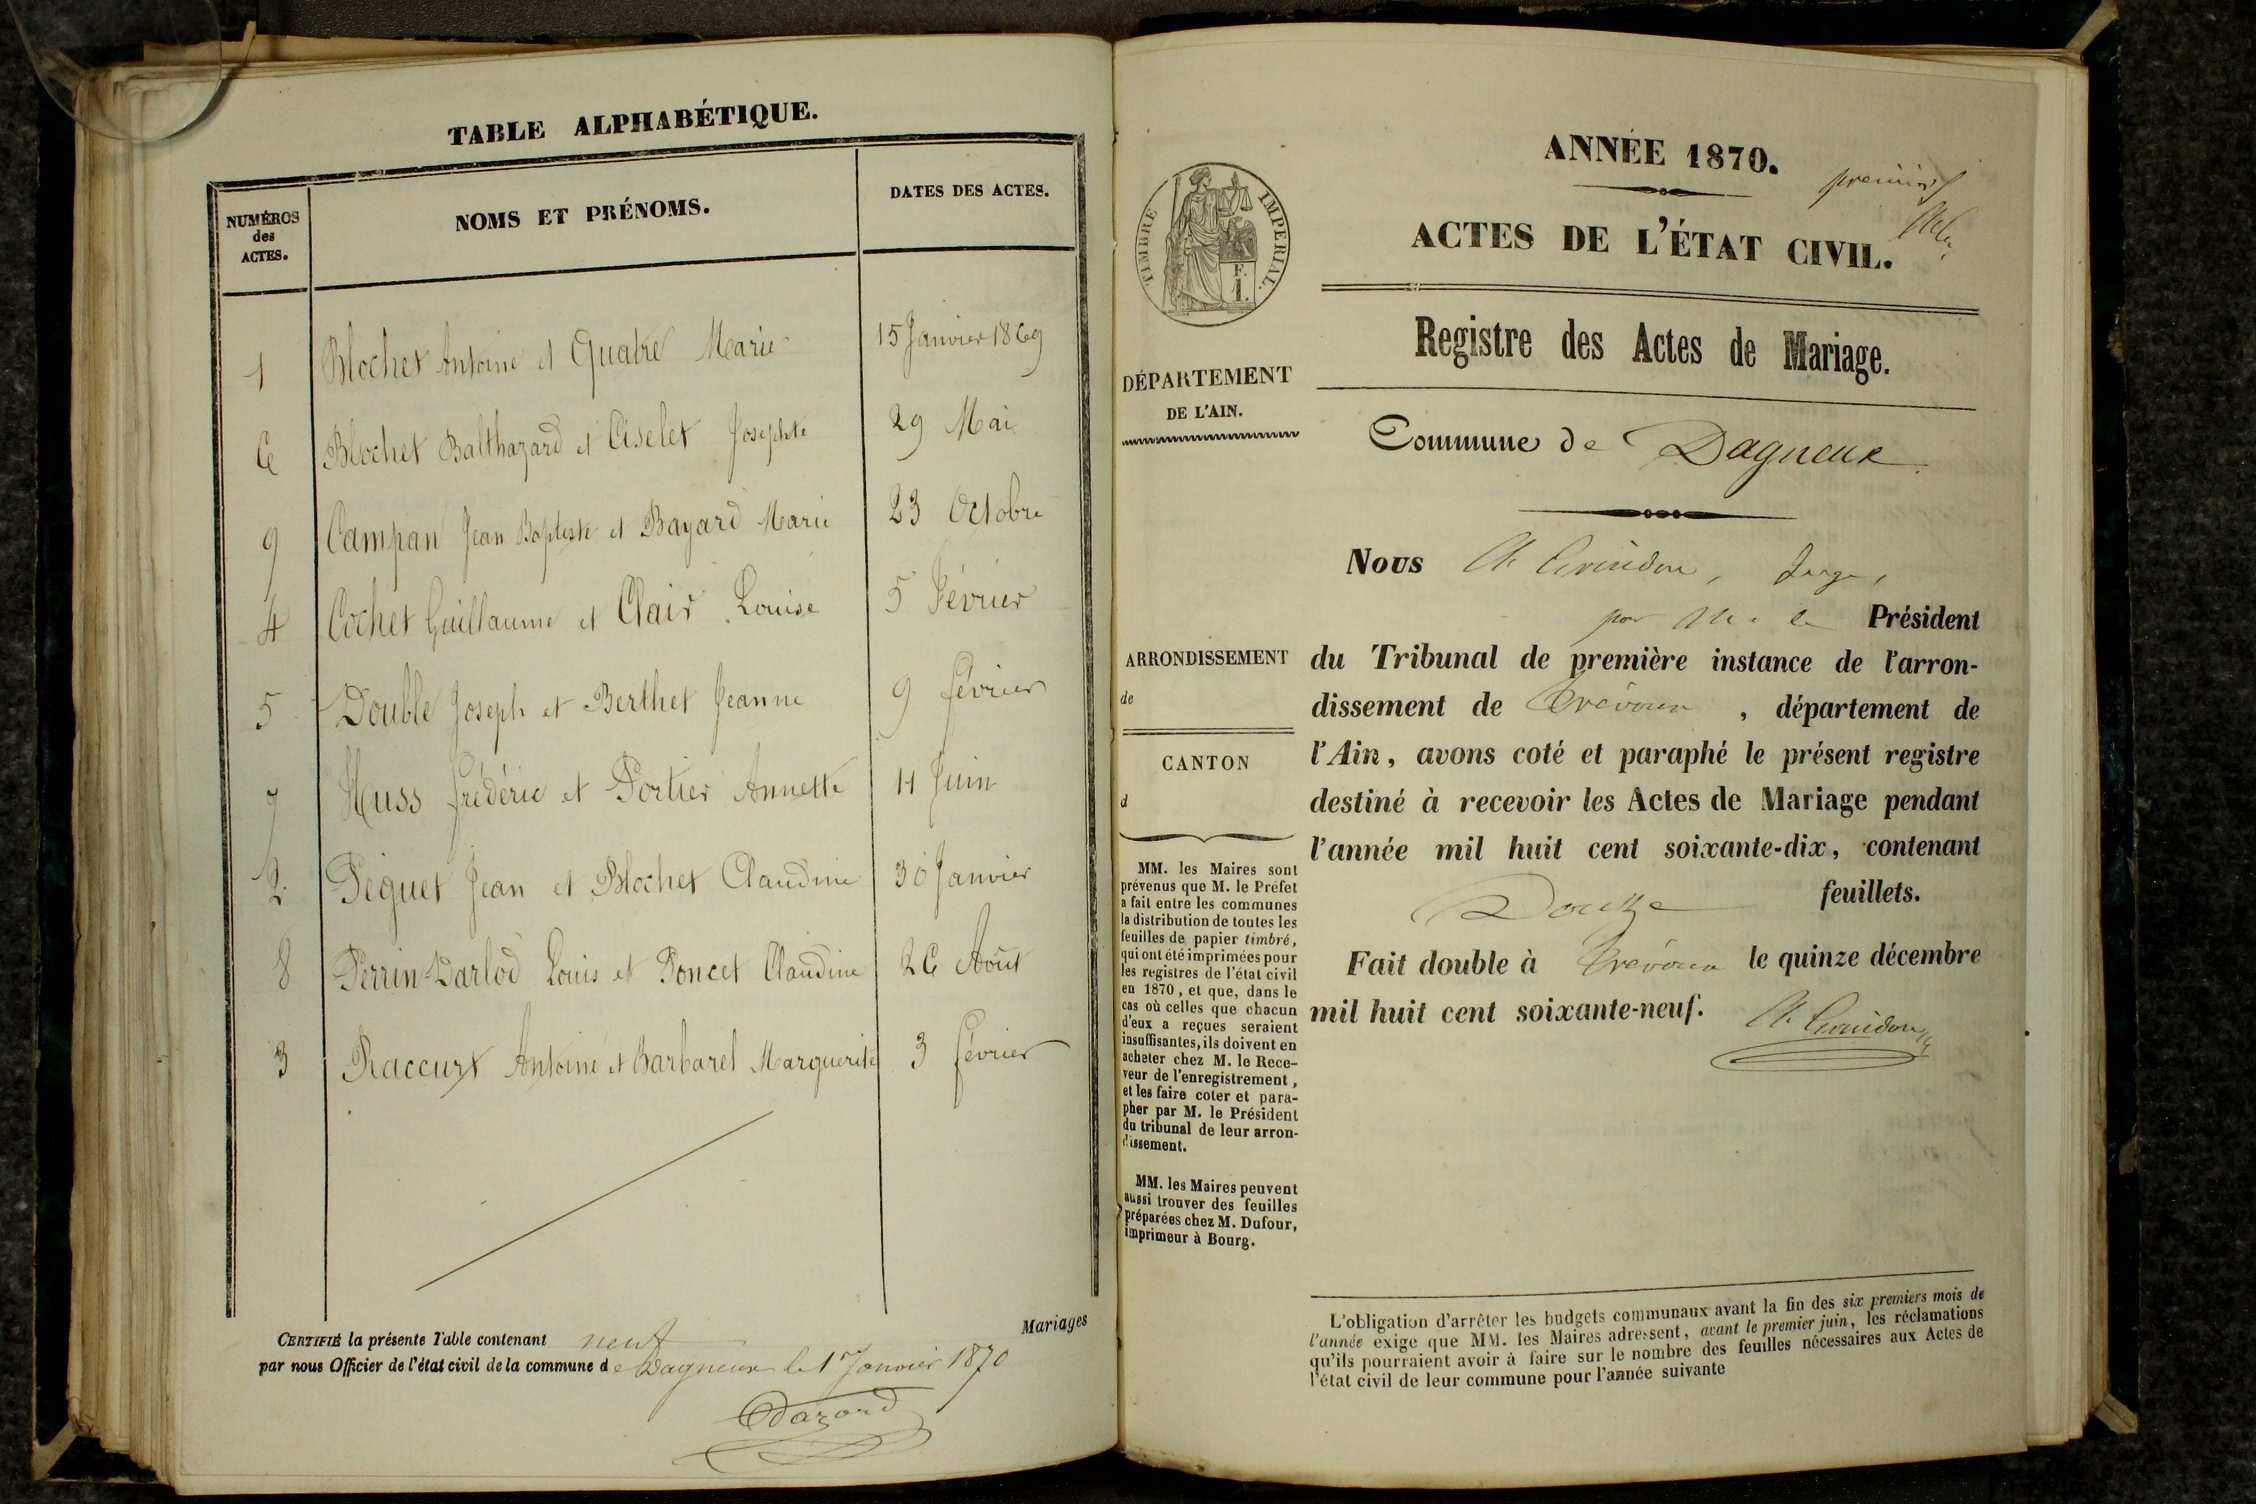 TABLE ALPHABÉTIQUE.
NUMÉROS des ACTES.
NOMS ET PRÉNOMS.
DATES DES ACTES.
1 Blochet Antoine et Quatre Marie 15 Janvier 1869
6 Blochet Balthazard et Ciselet Josephte 29 Mai
9 Campan Jean Baptiste et Bayard Marie 23 Octobre
4 Cochet Guillaume et Clair Louise 5 Février
5 Double Joseph et Berthet Jeanne 9 février
7 Huss frédéric et Portier Annette 11 Juin
2 Péguet Jean et Blochet Claudine 30 Janvier
8 Perrin-Darlod Louis et Poncet Claudine 26 Août
3 Raccurt Antoine et Barbaret Marguerite 3 février
Mariages
CERTIFIÉ la présente Table contenant neuf
par nous Officier de l'état civil de la commune de Dagneux le 1er Janvier 1870
ANNÉE 1870.
premier
ACTES DE L'ÉTAT CIVIL.
TIMBRE IMPERIAL.
F.
1.
Registre des Actes de Mariage.
DÉPARTEMENT
DE L'AIN.
Commune de Dagneux
Nous Juge,
par M. le Président
ARRONDISSEMENT
de
CANTON
d
du Tribunal de première instance de l'arron-
dissement de Trévoux, département de
l'Ain, avons coté et paraphé le présent registre
destiné à recevoir les Actes de Mariage pendant
l'année mil huit cent soixante-dix, contenant
Douze feuillets.
Fait double à Trévoux le quinze décembre
mil huit cent soixante-neuf.
MM. les Maires sont
prévenus que M. le Préfet
a fait entre les communes
la distribution de toutes les
feuilles de papier timbré,
qui ont été imprimées pour
les registres de l'état civil
en 1870, et que, dans le
cas où celles que chacun
d'eux a reçues seraient
insuffisantes, ils doivent en
acheter chez M. le Rece-
veur de l'enregistrement,
et les faire coter et para-
pher par M. le Président
du tribunal de leur arron-
dissement.
MM. les Maires peuvent
aussi trouver des feuilles
préparées chez M. Dufour,
imprimeur à Bourg.
L'obligation d'arrêter les budgets communaux avant la fin des six premiers mois de
l'année exige que MM. les Maires adressent, avant le premier juin, les réclamations
qu'ils pourraient avoir à faire sur le nombre des feuilles nécessaires aux Actes de
l'état civil de leur commune pour l'année suivante